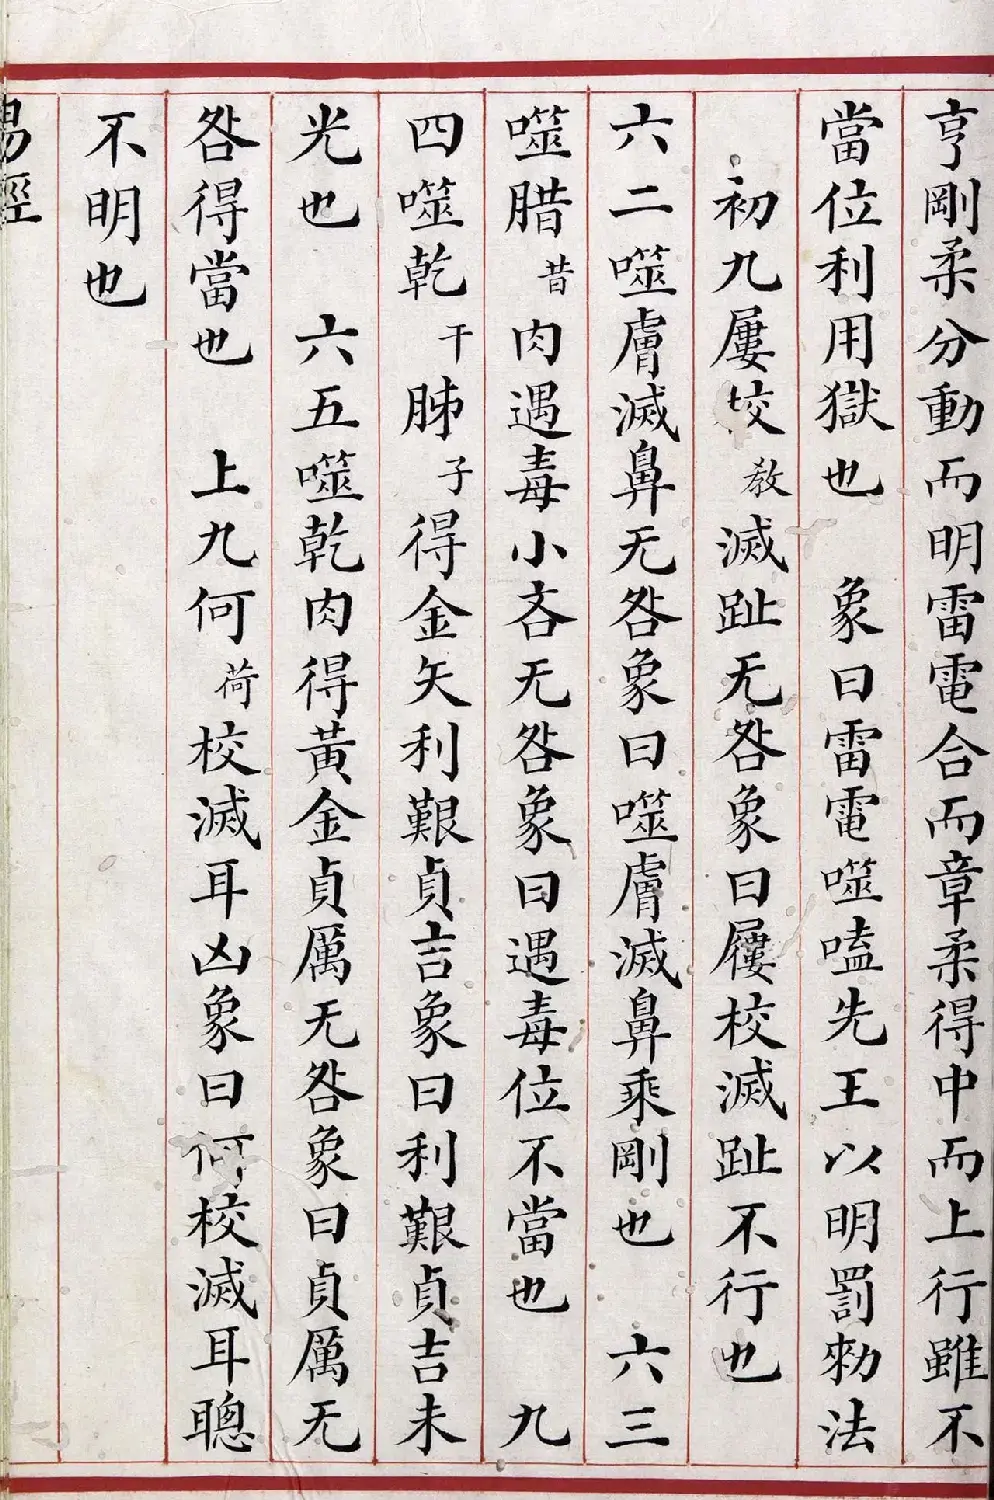 亨剛柔分動而明雷電合而章柔得中而上行雖不
當位利用獄也　象曰雷電噬嗑先王以明罰勑法
初九屨校教滅趾无咎象曰屨校滅趾不行也
六二噬膚滅鼻无咎象曰噬膚滅鼻乘剛也　六三
噬腊昔肉遇毒小吝无咎象曰遇毒位不當也　九
四噬乾干胏子得金矢利艱貞吉象曰利艱貞吉未
光也　六五噬乾肉得黃金貞厲无咎象曰貞厲无
咎得當也　上九何荷校滅耳凶象曰何校滅耳聰
不明也
易經